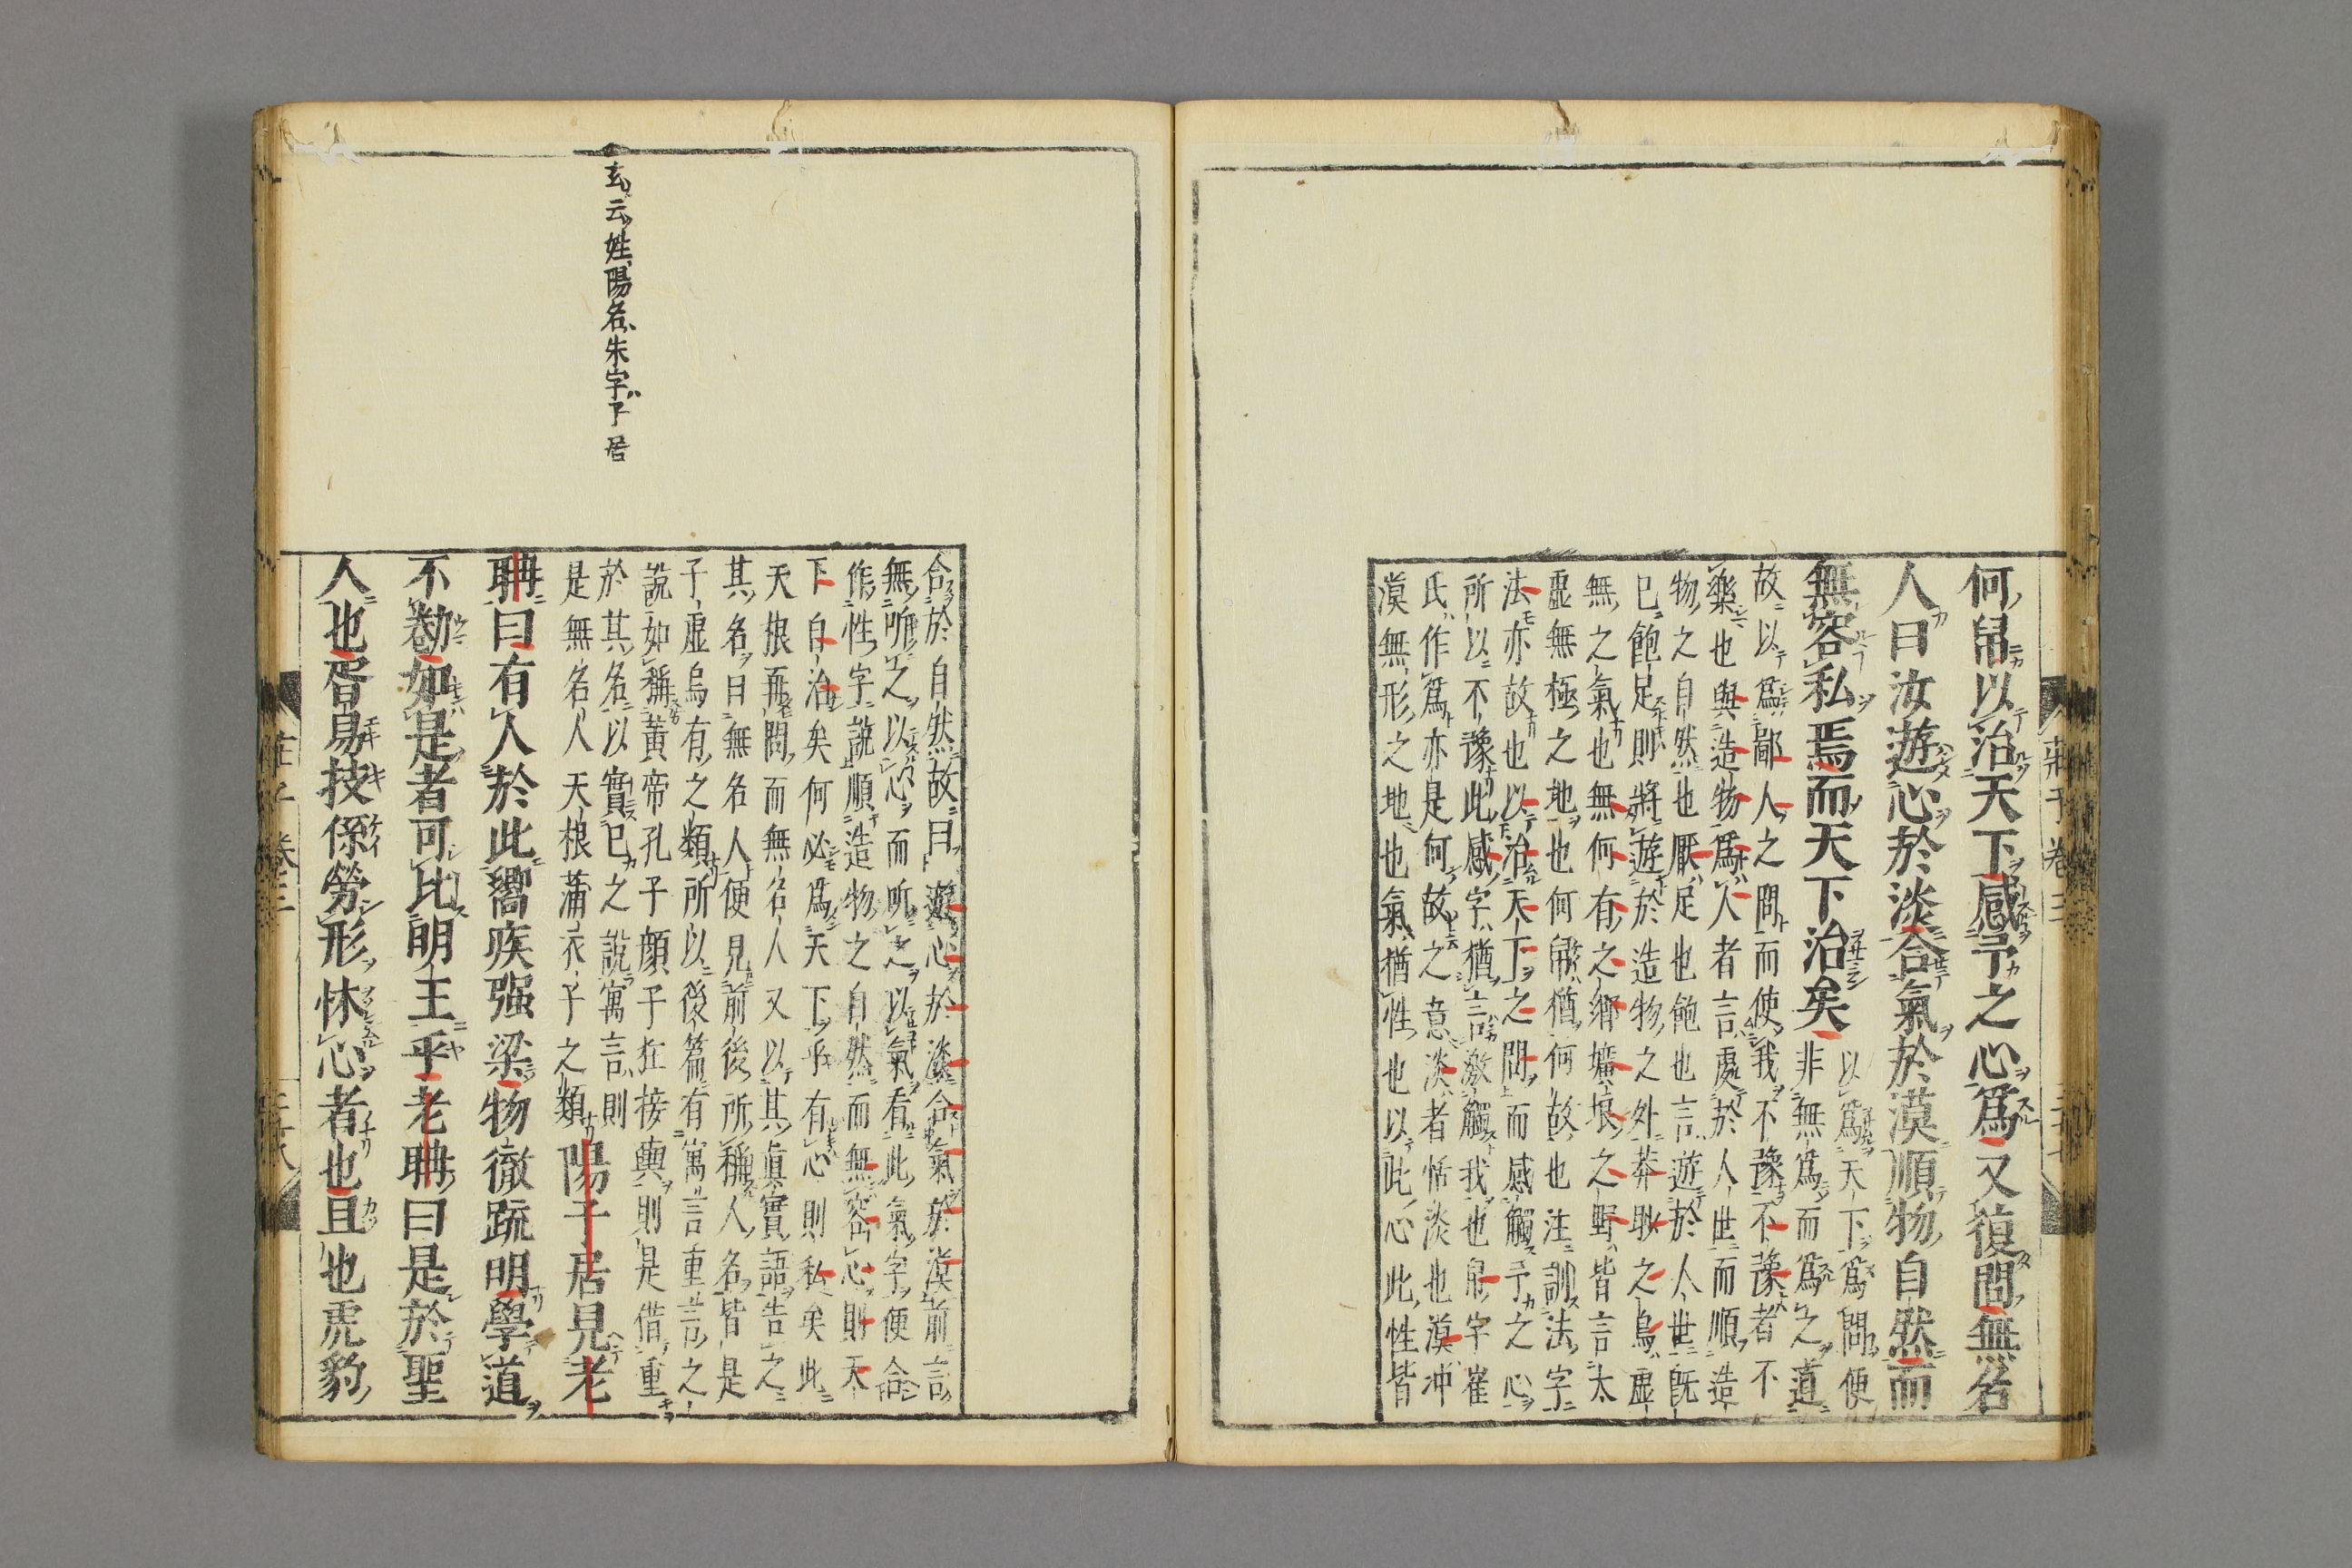 莊子卷三
何帠以治天下感予之心爲又復問無名
人曰汝遊心於淡合氣於漠順物自然而
無容私焉而天下治矣
以爲天下爲問便
非無爲而爲之道
故以爲鄙人之問而使我不豫不豫者不
樂也與造物爲人者言處於人世而順造
物之自然也厭足也飽也言遊於人世既
已飽足則將遊於造物之外莽眇之鳥虛
無之氣也無何有之鄉壙埌之野皆言太
虛無極之地也何帠猶何故也注訓法字
法亦故也以治天下之問而感觸予之心
所以不豫此感字猶言激觸我也帠字崔
氏作爲亦是何故之意淡者恬淡也漠冲
漠無形之地也氣猶性也以此心此性皆
玄云姓陽名朱字子居
合於自然故曰遊心於淡合氣於漠前言
無听之以心而听之以氣看此氣字便合
作性字說順造物之自然而無容心則天
下自治矣何必爲天下乎有心則私矣此
天根再問而無名人又以其眞實語告之
其名曰無名人便見前後所稱人名皆是
子虛烏有之類所以後篇有寓言重言之
說如稱黃帝孔子顏子狂接輿則是借重
於其名以實已之說寓言則
是無名人天根蒲衣子之類
陽子居見老
聃曰有人於此嚮疾强梁物徹疏明學道
不勌如是者可比明王乎老聃曰是於聖
人也胥易技係勞形怵心者也且也虎豹
莊子卷三